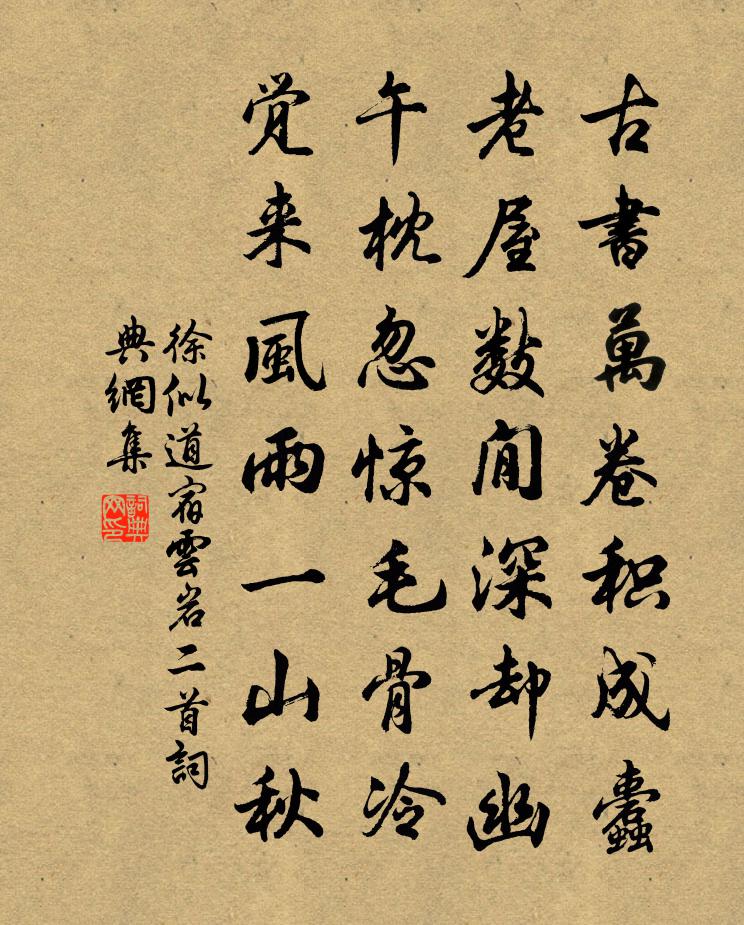 古書萬卷积成蠹
老屋数间深却幽
午枕忽惊毛骨冷
觉来風雨一山秋
徐似道宿雲岩二首詞
典網集
詞典網印